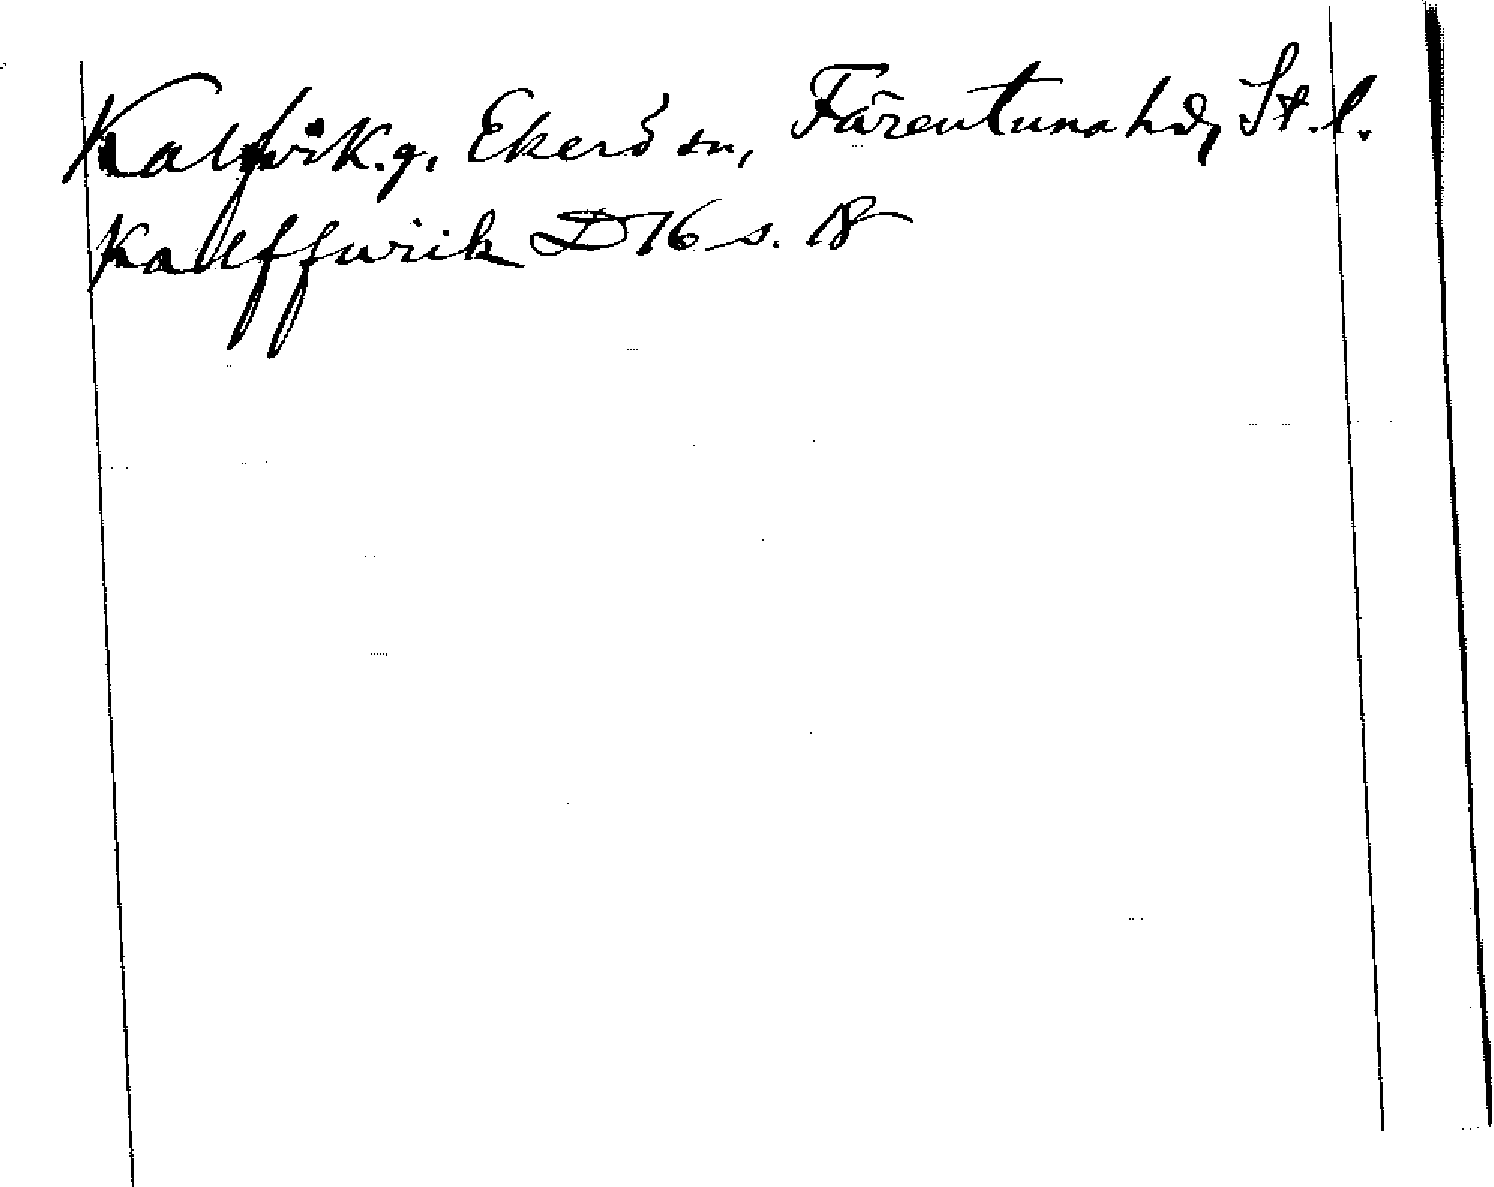 Kalfvik. g. Ekerö sn, Färentuna hd, St. l.
Kalffwik D 76 s. 18